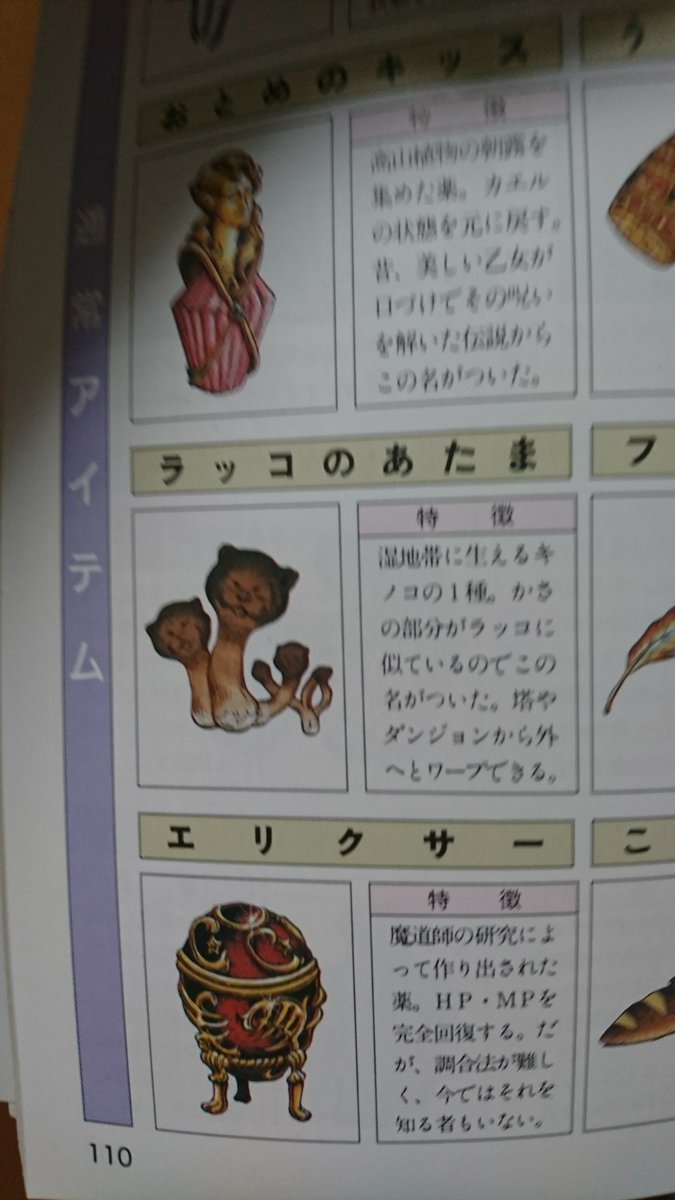 通常アイテム
おとめのキッス
特徴
高山植物の朝露を
集めた薬。カエル
の状態を元に戻す。
昔、美しい乙女が
口づけでその呪い
を解いた伝説から
この名がついた。
ラッコのあたま
特徴
湿地帯に生えるキ
ノコの1種。かさ
の部分がラッコに
似ているのでこの
名がついた。塔や
ダンジョンから外
へとワープできる。
エリクサー
特徴
魔道師の研究によ
って作り出された
薬。HP・MPを
完全回復する。だ
が、調合法が難し
く、今ではそれを
知る者もいない。
う
フ
こ
110